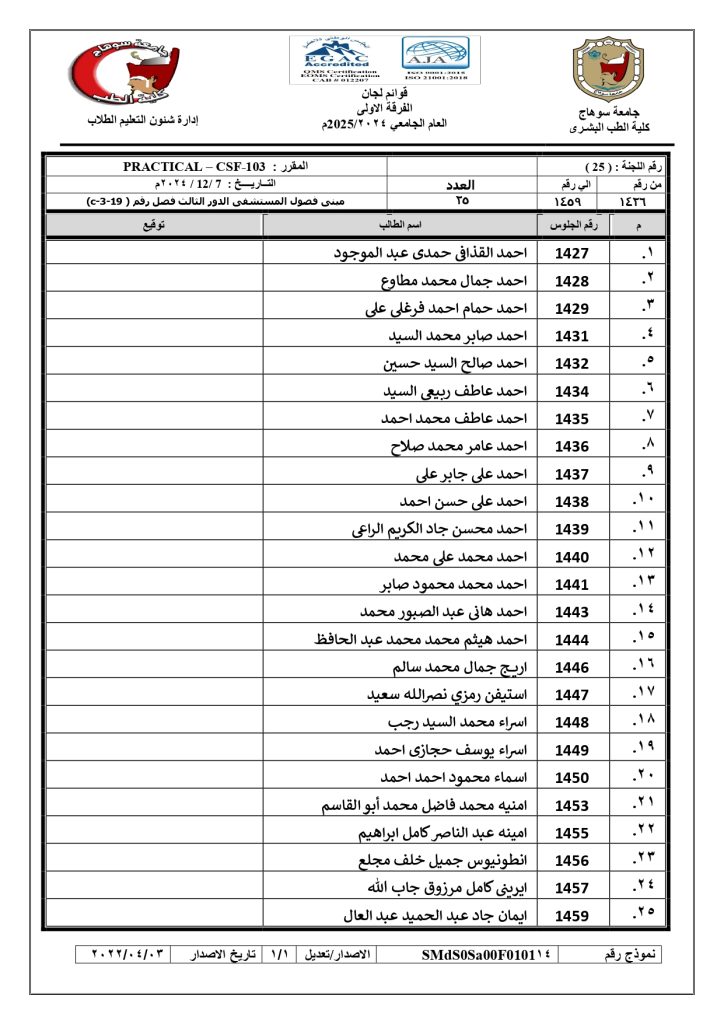 جامعة سوهاج
كلية الطب
EGAC
Accredited
QMS Certification
EOMS Certification
CAB # 012207
AJA
ISO 9001:2015
ISO 21001:2018
جامعة سوهاج
كلية الطب البشرى
قوائم لجان
الفرقة الاولى
العام الجامعي ٢٠٢٤/2025م
إدارة شئون التعليم الطلاب
رقم اللجنة : ( 25 ) المقرر : PRACTICAL – CSF-103
من رقم الي رقم العدد التـاريـــخ : 7 /12 / ٢٠٢٤م
١٤٢٦ ١٤٥٩ ٢٥ مبنى فصول المستشفى الدور الثالث فصل رقم ( c-3-19)
م رقم الجلوس اسم الطالب توقيع
١. 1427 احمد القذافى حمدى عبد الموجود
٢. 1428 احمد جمال محمد مطاوع
٣. 1429 احمد حمام احمد فرغلى على
٤. 1431 احمد صابر محمد السيد
٥. 1432 احمد صالح السيد حسين
٦. 1434 احمد عاطف ربيعى السيد
٧. 1435 احمد عاطف محمد احمد
٨. 1436 احمد عامر محمد صلاح
٩. 1437 احمد على جابر على
١٠. 1438 احمد على حسن احمد
١١. 1439 احمد محسن جاد الكريم الراعى
١٢. 1440 احمد محمد على محمد
١٣. 1441 احمد محمد محمود صابر
١٤. 1443 احمد هانى عبد الصبور محمد
١٥. 1444 احمد هيثم محمد محمد عبد الحافظ
١٦. 1446 اريج جمال محمد سالم
١٧. 1447 استيفن رمزي نصرالله سعيد
١٨. 1448 اسراء محمد السيد رجب
١٩. 1449 اسراء يوسف حجازى احمد
٢٠. 1450 اسماء محمود احمد احمد
٢١. 1453 امنيه محمد فاضل محمد أبو القاسم
٢٢. 1455 امينه عبد الناصر كامل ابراهيم
٢٣. 1456 انطونيوس جميل خلف مجلع
٢٤. 1457 ايرينى كامل مرزوق جاب الله
٢٥. 1459 ايمان جاد عبد الحميد عبد العال
نموذج رقم SMdS0Sa00F0101١٤ الاصدار/تعديل ١/١ تاريخ الاصدار ٢٠٢٢/٠٤/٠٣